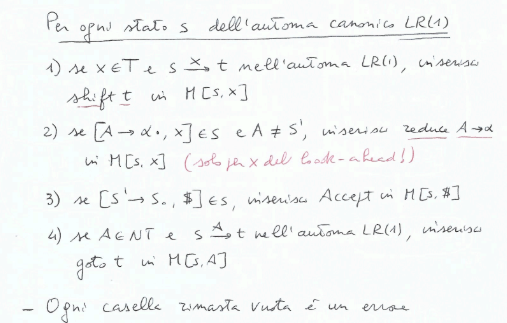 Per ogni stato s dell'automa canonico LR(1)
1) se x ∈ T e s —x→ t nell'automa LR(1), inserisci
shift t in M[s,x]
2) se [A → α., x] ∈ s e A ≠ S', inserisci reduce A→α
in M[s,x] (solo per x del look-ahead!)
3) se [S' → S., $] ∈ s, inserisci Accept in M[s,$]
4) se A ∈ NT e s —A→ t nell'automa LR(1), inserisci
goto t in M[s,A]
- Ogni casella rimasta vuota è un errore